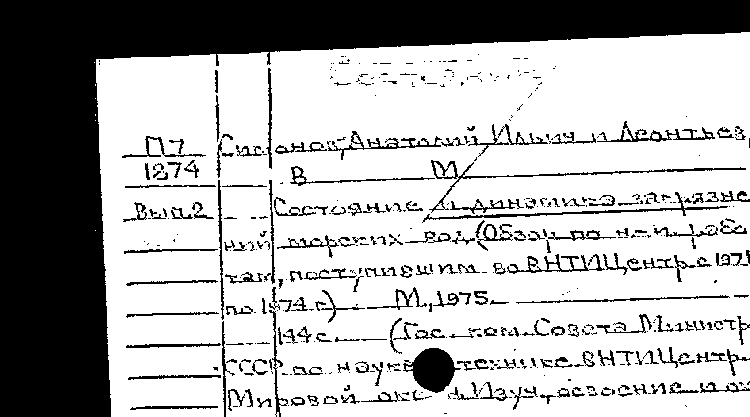 Состояние
П7 Симонов, Анатолий Ильич и Леонтьев,
1874 В М
Вып.2 Состояние и динамика загрязне
ний морских вод (Обзор по н.-и. рабо
там, поступившим во ВНТИЦентр с 1971
по 1974 г.) М., 1975.
144 с. (Гос. ком. Совета Министр
СССР по науке техникe ВНТИЦентр.
Мировой Изуч., освоение и ох